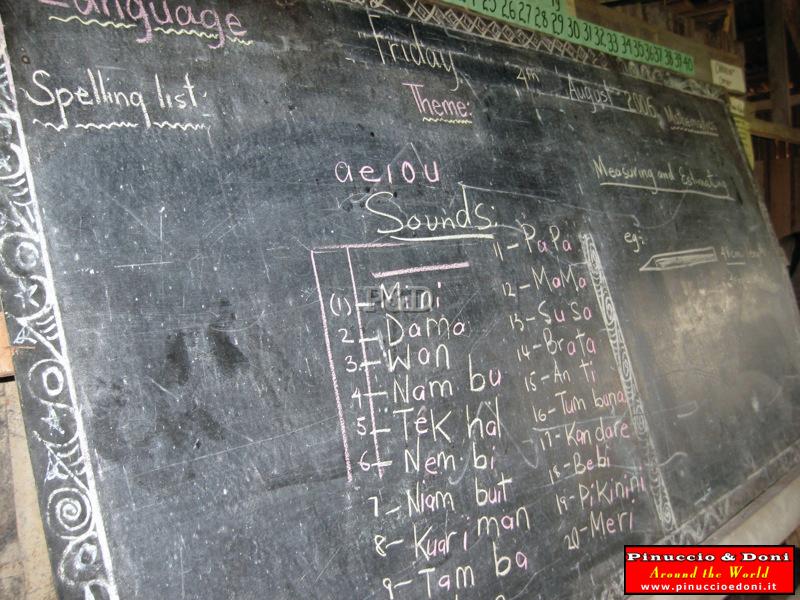 Language
24 25 26 27 28 29 30 31 32 33 34 35 36 37 38 39 40
Friday 4th August 2006
Spelling list:
Theme:
Mathematics
a e i o u
Measuring and Estimating
Sounds:
eg:
(1) - Mini
2 - Dama
3 - Wan
4 - Nam bu
5 - Tek hal
6 - Nem bi
7 - Niam buit
8 - Kuari man
9 - Tam ba
11 - PaPa
12 - MaMa
13 - SuSa
14 - Brata
15 - An ti
16 - Tum buna
17 - Kan dare
18 - Bebi
19 - Pikinini
20 - Meri
P&D
Pinuccio & Doni
Around the World
www.pinuccioedoni.it